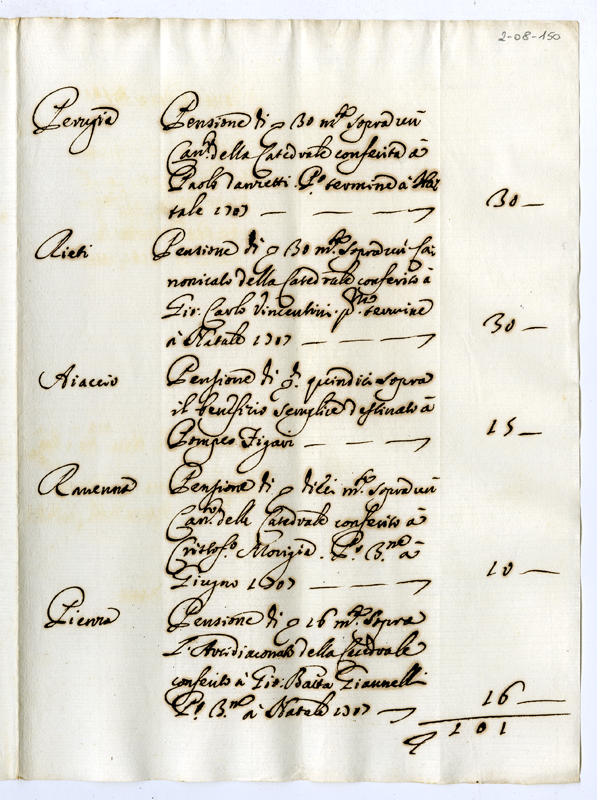 2-08-150
Perugia Pensione di 30 m.ta sopra un
Can.to della Catedrale conferito à
Paolo P.o termine à Na-
tale 1707 — — — 30 —
Rieti Pensione di 30 m.ta sopra un Ca-
nonicato della Catedrale conferito à
Gio: Carlo Vincentini. p.mo termine
à Natale 1707 — — — 30 —
Aiaccio Pensione di quindici sopra
il beneficio semplice destinato à
Pompeo Figari — — — 15 —
Ravenna Pensione di dieci m.ta sopra un
Can.to della Catedrale conferito à
Cristof.o Morigia. P.o 3.ne à
Giugno 1707 — — 10 —
Pienza Pensione di 16 m.ta sopra
l'Arcidiaconato della Catedrale
conferito à Gio: Batta Giannelli
P.o 3.ne à Natale 1707 — 16 —
101